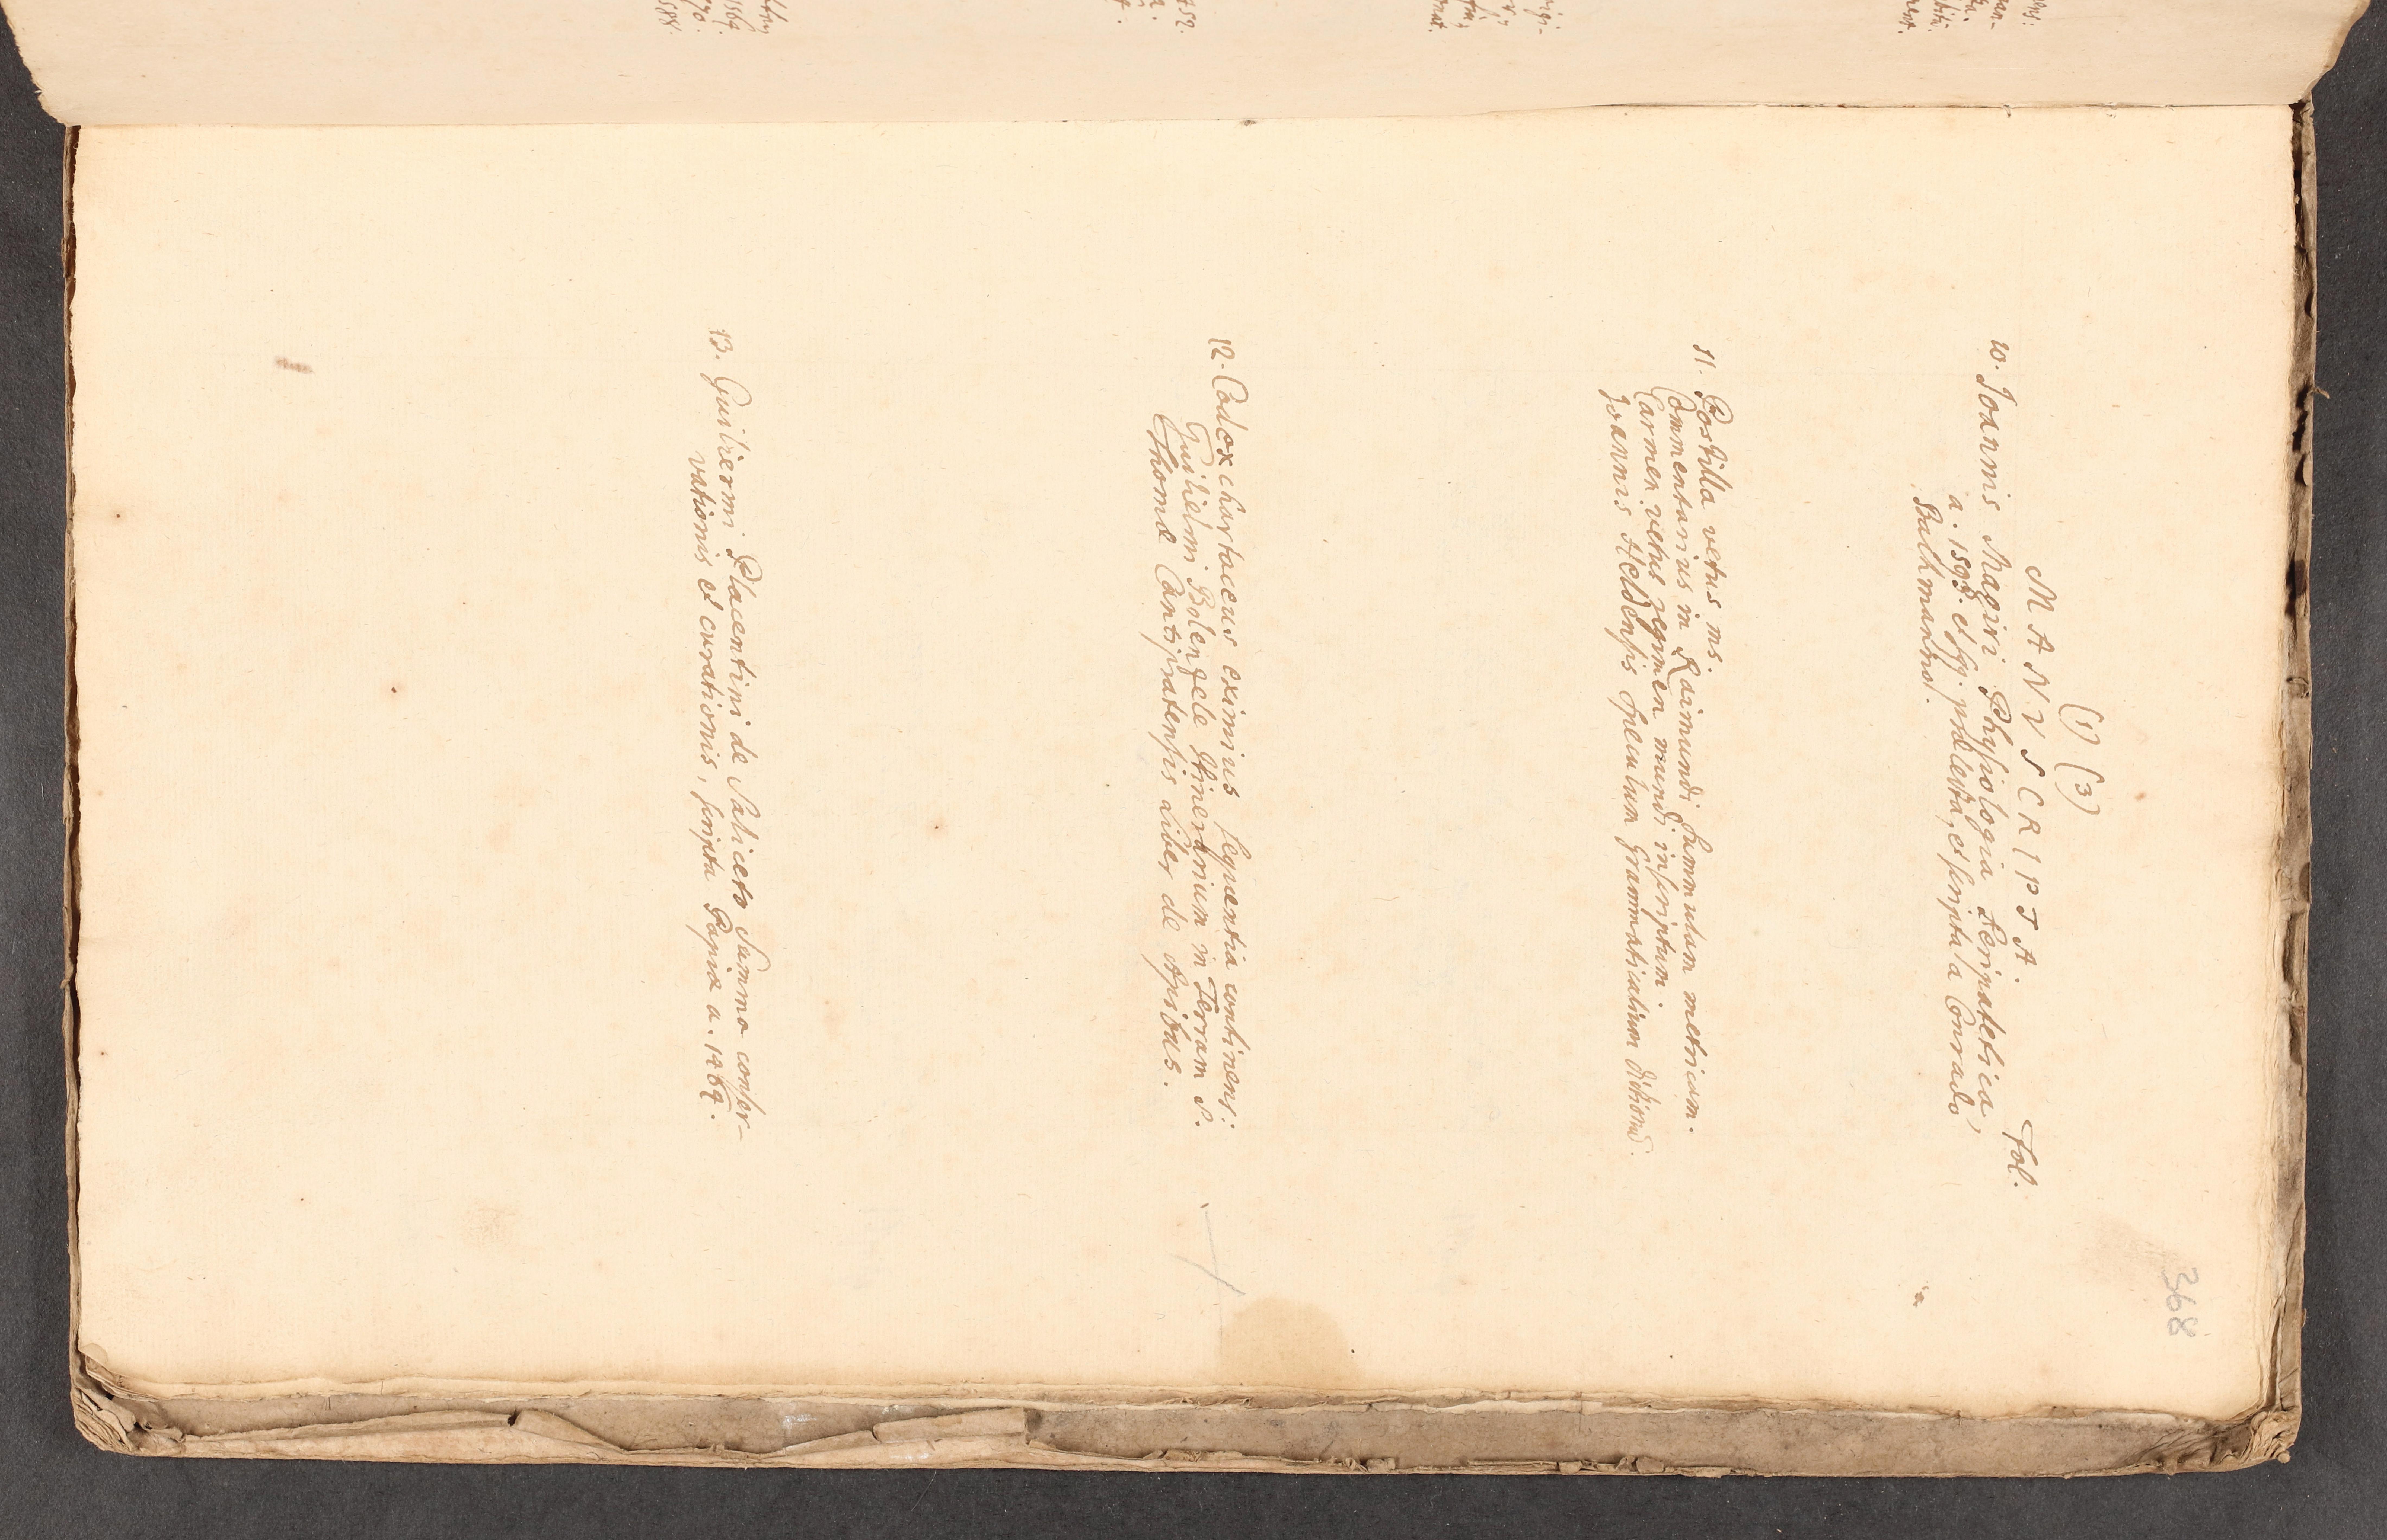 368
(1) (3)
MANVSCRIPTA. Fol.
10. Joannis Magiri Physiologia Peripatetica,
a. 1593. et sqq. prælecta, et scripta a Conrado
Bachmanno.
11. Postilla vetus ms.
Commentarius in Raimundi summulam metricam.
Carmen vetus regimen mundi inscriptum.
Joannis Heldensis speculum Grammaticalium dictionũ.
12. Codex chartaceus eximius sequentia continens:
Guilielmi Bolenzele Itinerarium in Terram S.
Thomæ Cantipratensis Liber de Apibus.
13. Guilielmi Placentini de Saliceto Summa conser-
vationis et curationis, scripta Papiæ a. 1464.